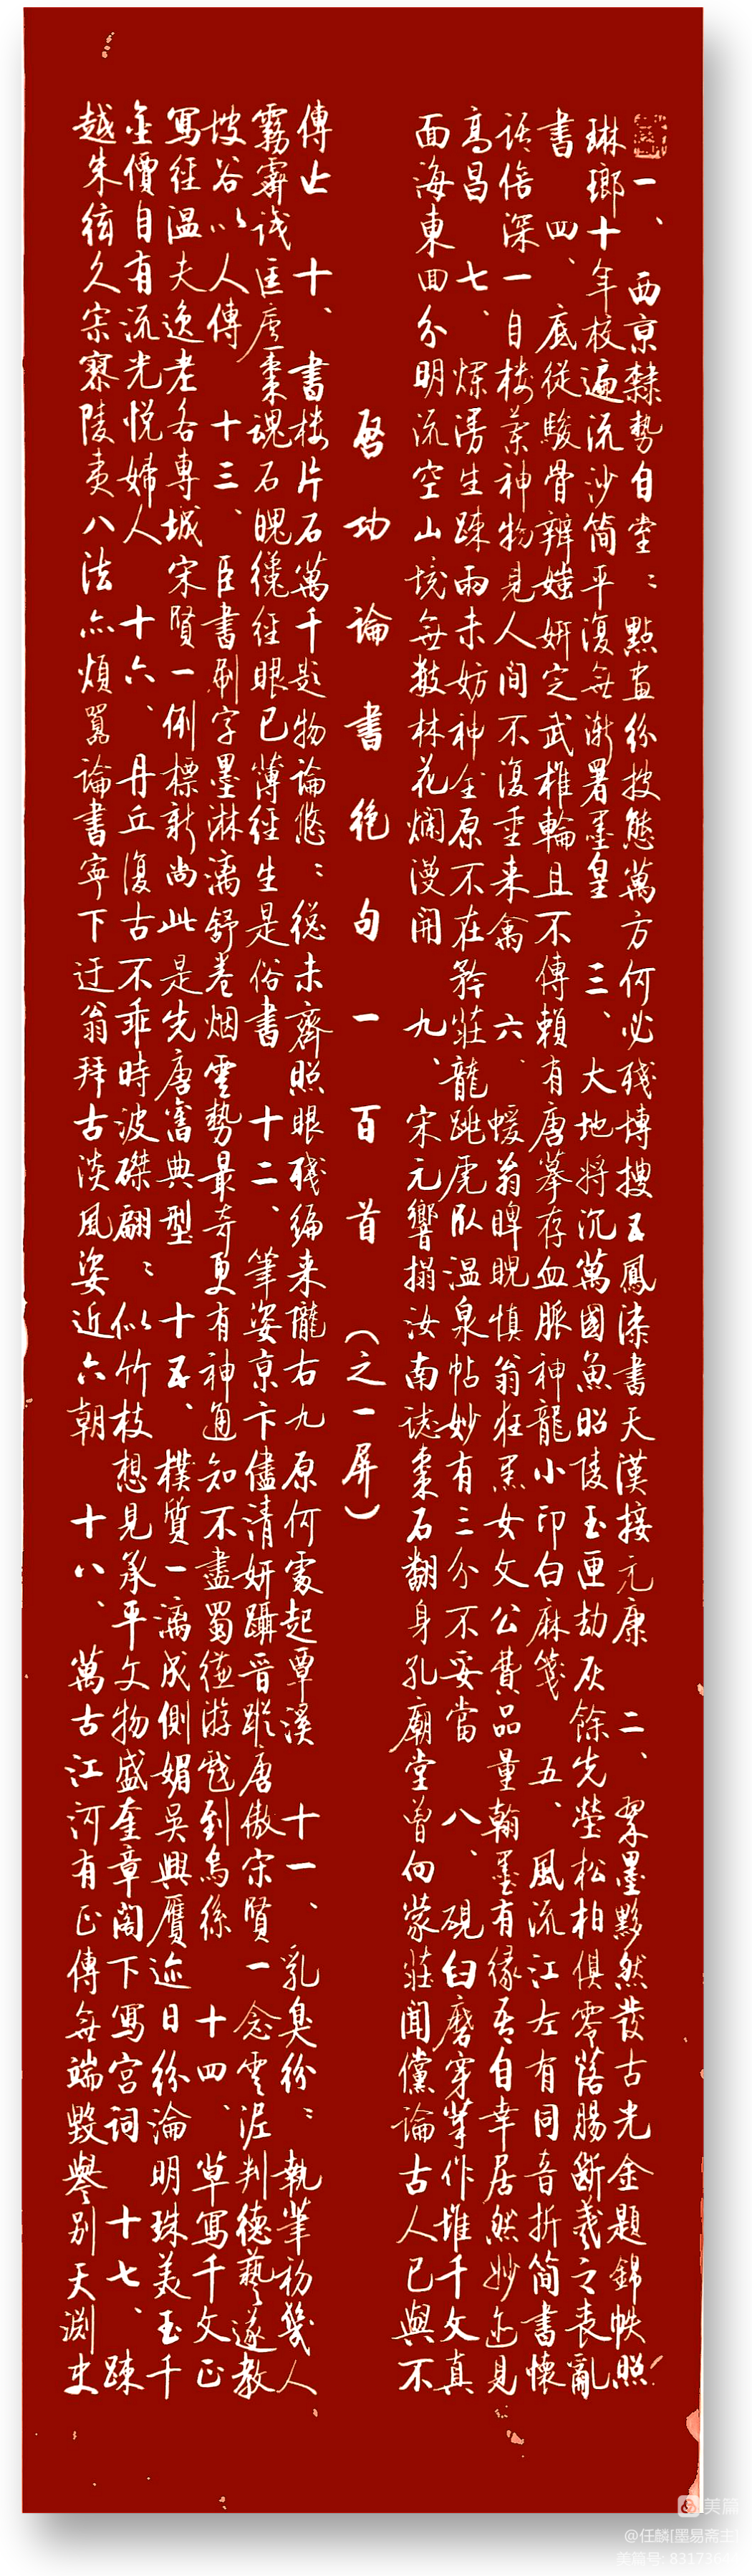 一、西京隸勢自堂：點畫紛披態萬方何必殘塼搜五鳳漆書天漢接元康 二、翠墨黟然發古光金題錦帙照
琳瑯十年校遍流沙简平復無慚署墨皇 三、大地將沉萬國魚昭陵玉匣劫灰餘先塋松柏俱零落腸斷羲之喪亂
書 四、底從駿骨辨媸妍定武椎輪且不傳賴有唐摹存血脈神龍小印白麻箋 五、風流江左有同音折简書懷
語倍深一自樓蘭神物見人間不復重来禽 六、蝯翁睥睨慎翁狂黑女文公費品量翰墨有緣吾自幸居然妙迹見
高昌 七、爛漫生疎兩未妨神全原不在矜莊龍跳虎卧温泉帖妙有三分不妥當 八、硯臼磨穿筆作堆千文真
面海東回分明流空山境無數林花爛漫開 九、宋元響搨汝南誌棗石翻身孔廟堂曾向蒙莊聞儻論古人已與不
啓功論書絶句一百首（之一屏）
傳止 十、書樓片石萬千題物論悠：總未齊照眼殘編来隴右九原何處起覃溪 十一、乳臭紛：執筆初幾人
霧霽識匡廬棗魂石魄纔經眼已薄經生是俗書 十二、筆姿京卞儘清妍躡晋踪唐傲宋賢一念雲泥判德藝遂教
坡谷以人傳 十三、臣書刷字墨淋漓舒卷烟雲勢最奇更有神通知不盡蜀縑游戲到烏絲 十四、草寫千文正
寫經温夫逸老各專城宋賢一例標新尚此是先唐舊典型 十五、樸質一漓成側媚吴興贋迹日紛淪明珠美玉千
金價自有流光悦婦人 十六、丹丘復古不乖時波磔翩：似竹枝想見承平文物盛奎章閣下寫宫詞 十七、疎
越朱絃久寂寥陵夷八法亦煩囂論書寧下迂翁拜古淡風姿近六朝 十八、萬古江河有正傳無端毁譽别天淵史
美篇
@任麟[墨易斋主]